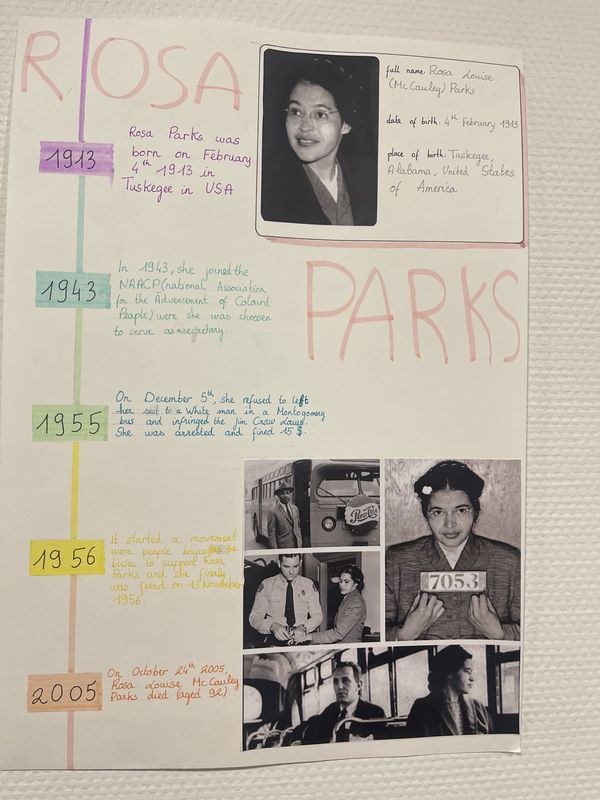 ROSA
full name: Rosa Louise
(McCauley) Parks
date of birth: 4th February 1913
place of birth: Tuskegee,
Alabama, United States
of America
1913
Rosa Parks was
born on February
4th 1913 in
Tuskegee in USA
PARKS
1943
In 1943, she joined the
NAACP (national Association
for the Advencement of Colourd
People) were she was choosen
to serve as a secretary.
1955
On December 5th, she refused to left
her seit to a White man in a Montogomery
bus and infringed the Jim Craw Laws.
She was arrested and fined 15 $.
1956
It started a movement
were people boycotted the
buses to support Rosa
Parks and she finally
was freed on 13 November
1956.
2005
On October 24th 2005,
Rosa Louise McCauley
Parks died (aged 92)
Pepsi-Cola
7053